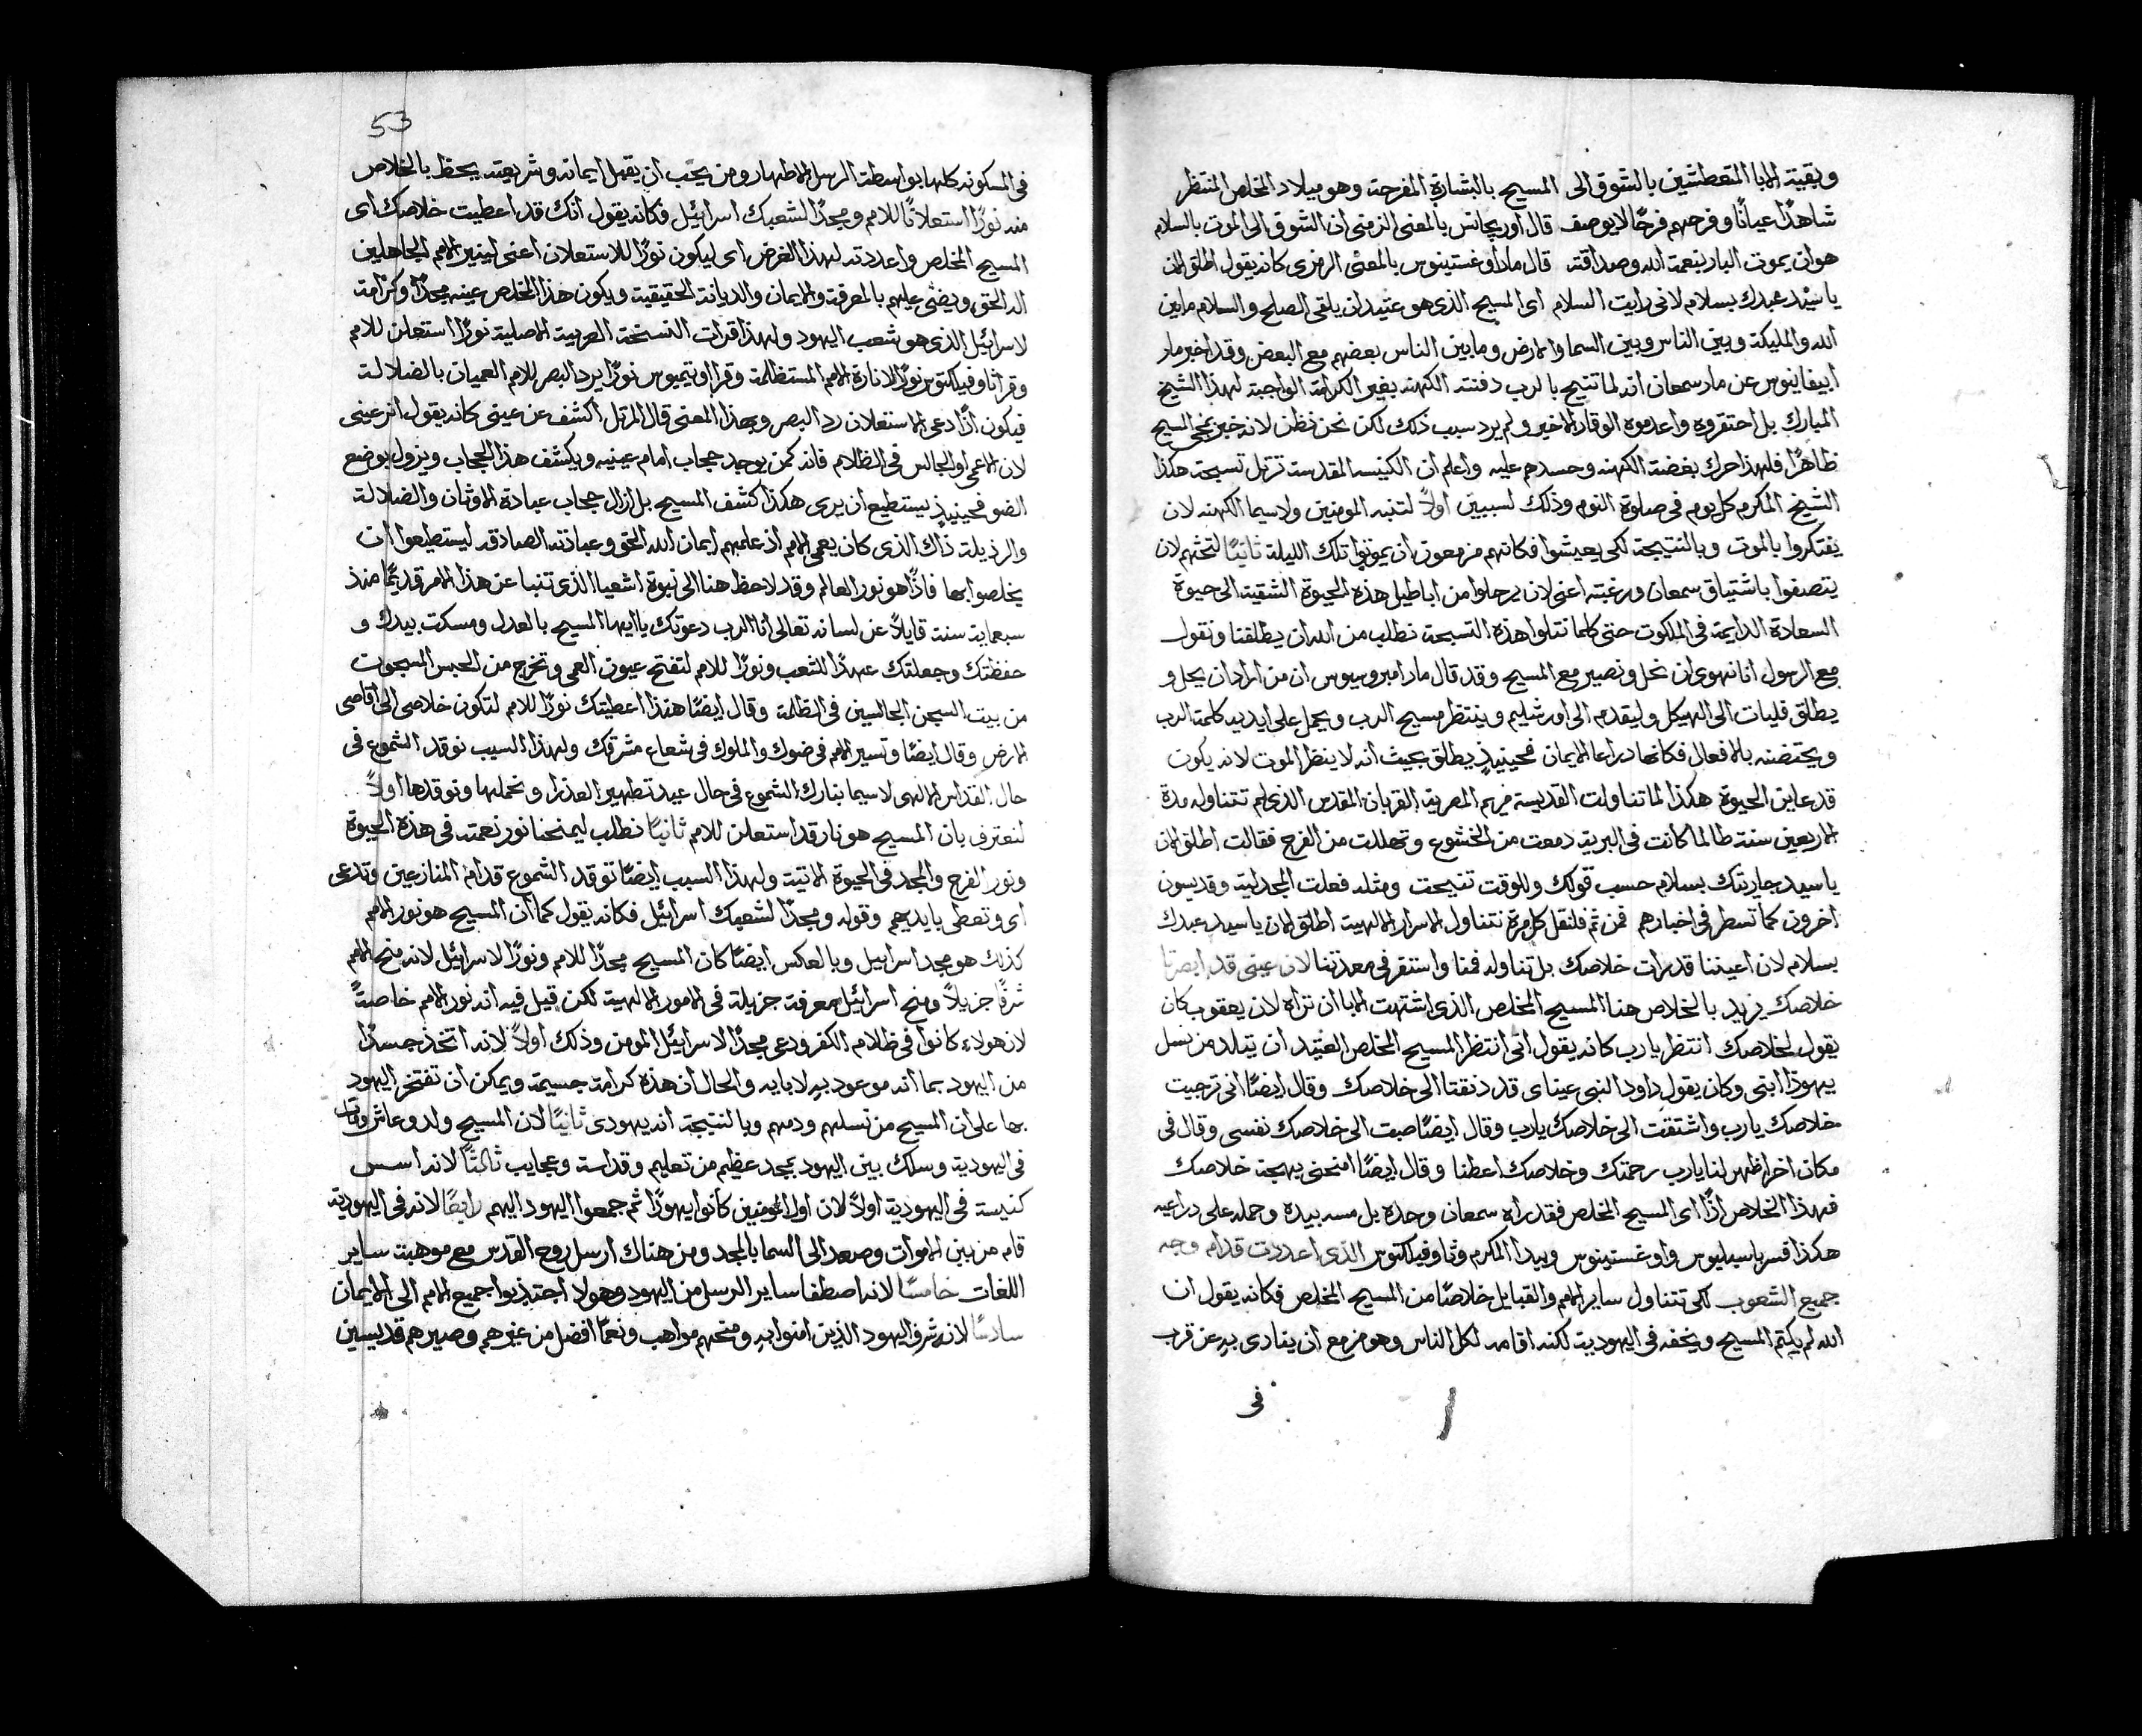 وبقية الابا المتعطشين بالشوق الى المسيح بالبشارة المفرحة وهو ميلاد المخلص المنتظر
شاهدًا عيانًا وفرحهم فرحًا لا يوصف قال اوريجانس بالمعنى الرمزي ان الشوق الى الموت بالسلام
هو ان يموت البار بنعمة الله وصداقته قال مار اوغستينوس بالمعنى الرمزي كانه يقول اطلق الان
يا سيد عبدك بسلام لانى رايت السلام اى المسيح الذى هو عتيد ان يلقى الصلح والسلام ما بين
الله والمليكة وبين الناس وبين السما والارض وما بين الناس بعضهم مع البعض وقد اخبر مار
ابيفانيوس عن مار سمعان انه لما تنيح بالرب دفنته الكهنه بغير الكرامة الواجبة لهذا الشيخ
المبارك بل احتقروه واعدموه الوقار الاخير ولم يرد سبب ذلك لكن نحن نظن لانه خبر بمجى المسيح
ظاهرًا فلهذا حرك بغضة الكهنه وحسدهم عليه واعلم ان الكنيسه المقدسة ترتل تسبحة هكذا
الشيخ المكرم كل يوم في صلوة النوم وذلك لسببين اولاً لتنبه المومنين ولا سيما الكهنه لان
يفتكروا بالموت وبالنتيجة لكى يعيشوا فكانهم مزمعون ان يموتوا تلك الليلة ثانيًا لتحثهم لان
يتصفوا باشتياق سمعان ورغبته اعنى لان يرحلوا من اباطيل هذه الحيوة الشقية الى حيوة
السعادة الدايمة فى الملكوت حتى كلما نتلوا هذه التسبحة نطلب من الله ان يطلقنا ونقول
مع الرسول انا نهوى ان نحل ونصير مع المسيح وقد قال مار امبروسيوس ان من اراد ان يحل و
يطلق فليات الى الهيكل وليقدم الى اورشليم وينتظر مسيح الرب ويحمل على ايديه كلمة الرب
ويحتضنه بالافعال فكانها دراعا الايمان فحينيذٍ يطلق بحيث انه لا ينظر الموت لانه يكون
قد عاين الحيوة هكذا لما تناولت القديسة مريم المصرية القربان المقدس الذى لم تتناوله مدة
الاربعين سنة طالما كانت في البرية دمعت من الخشوع وتهللت من الفرح فقالت اطلق الان
يا سيد جاريتك بسلام حسب قولك وللوقت تنيحت ومثله فعلت المجدلية وقديسون
اخرون كما تسطر في اخبارهم فمن ثم فلنقل كل مرة نتناول الاسرار الالهية اطلق الان يا سيد عبدك
بسلام لان اعيننا قد رات خلاصك بل تناوله فمنا واستقر في معدتنا لان عينى قد ابصرتا
خلاصك يريد بالخلاص هنا المسيح المخلص الذى اشتهت الابا ان تراه لان يعقوب كان
يقول لخلاصك انتظر يا رب كانه يقول انى انتظر المسيح المخلص العتيد ان يتلد من نسل
يهوذا ابنى وكان يقول داود النبي عيناى قد ذنقتا الى خلاصك وقال ايضًا انى ترجيت
خلاصك يا رب واشتقت الى خلاصك يا رب وقال ايضًا صبت الى خلاصك نفسى وقال فى
مكان اخر اظهر لنا يا رب رحمتك وخلاصك اعطنا وقال ايضًا امنحنى بهجة خلاصك
فهذا الخلاص اذًا اى المسيح المخلص فقد راه سمعان وحده بل مسه بيده وحمله على دراعيه
هكذا فسر باسيليوس واوغستينوس وبيدا المكرم وثاوفيلكتوس الذى اعددت قدام وجه
جميع الشعوب لكى تتناول ساير الامم والقبايل خلاصًا من المسيح المخلص فكانه يقول ان
الله لم يكتم المسيح ويخفه في اليهودية لكنه اقامه لكل الناس وهو مزمع ان ينادى به عن قرب
فى
53
فى المسكونه كلها بواسطة الرسل الاطهار ومن يحب ان يقبل ايمانه وشريعته يحظ بالخلاص
منه نورًا استعلانًا للامم ومجدًا لشعبك اسرائيل فكانه يقول انك قد اعطيت خلاصك اى
المسيح المخلص واعددته لهذا الغرض اى ليكون نورًا للاستعلان اعنى لينير الامم الجاهلين
الله الحق ويضى عليهم بالمعرفة والايمان والديانة الحقيقية ويكون هذا المخلص عينه مجدًا وكرامة
لاسرائيل الذى هو شعب اليهود ولهذا قرات النسخة العربية الاصلية نورًا استعلن للامم
وقرا ثاوفيلكتوس نورًا لانارة الامم المستظلمة وقرا اوتيميوس نورًا يرد البصر للامم العميان بالضلالة
فيكون اذًا دعى الاستعلان رد البصر وبهذا المعنى قال المرتل اكشف عن عينى كانه يقول انر عينى
لان الاعمى او الجالس فى الظلام فانه كمن يوجد حجاب امام عينيه ويكشف هذا الحجاب ويزول بوضع
الضو فحينيذٍ يستطيع ان يرى هكذا كشف المسيح بل ازال حجاب عبادة الاوثان والضلالة
والرذيلة ذاك الذى كان يعمى الامم اذ علمهم ايمان الله الحق وعبادته الصادقه ليستطيعوا ان
يخلصوا بها فاذًا هو نور العالم وقد لاحظ هنا الى نبوة اشعيا الذى تنبا عن هذا الامر قديمًا منذ
سبعماية سنة قايلاً عن لسانه تعالى انا الرب دعوتك يا ايها المسيح بالعدل ومسكت بيدك و
حفظتك وجعلتك عهدًا للشعب ونورًا للامم لتفتح عيون العمى وتخرج من الحبس المسجون
من بيت السجن الجالسين فى الظلمة وقال ايضًا هنذا اعطيتك نورًا للامم لتكون خلاصى الى اقاصى
الارض وقال ايضًا وتسير الامم فى ضوك والملوك فى شعاع مشرقك ولهذا السبب نوقد الشموع فى
حال القداس الالهى لا سيما نبارك الشموع فى حال عيد تطهير العذرا ونحملها ونوقدها اولاً
لنعترف بان المسيح هو نار قد استعلن للامم ثانيًا نطلب ليمنحنا نور نعمته فى هذه الحيوة
ونور الفرح والمجد فى الحيوة الاتية ولهذا السبب ايضًا توقد الشموع قدام المنازعين وتدعى
اى وتعطى بايديهم وقوله ومجدًا لشعبك اسرائيل فكانه يقول كما ان المسيح هو نور الامم
كذلك هو مجد اسرائيل وبالعكس ايضًا كان المسيح مجدًا للامم ونورًا لاسرائيل لانه منح الامم
شرفًا جزيلاً ومنح اسرائيل معرفة جزيلة فى الامور الالهية لكن قيل فيه انه نور الامم خاصةً
لان هولاء كانوا فى ظلام الكفر ودعى مجدًا لاسرائيل المومن وذلك اولاً لانه اتخذ جسدًا
من اليهود بما انه موعود به لابايه والحال ان هذه كرامة جسيمة ويمكن ان تفتخر اليهود
بها على ان المسيح من نسلهم ودمهم وبالنتيجة انه يهودى ثانيًا لان المسيح ولد وعاش ومات
فى اليهودية وسلك بين اليهود بمجد عظيم من تعليم وقداسة وعجايب ثالثًا لانه اسس
كنيسة فى اليهودية اولاً لان اول المومنين كانوا يهودًا ثم جمعوا اليهود اليهم رابعًا لانه فى اليهودية
قام من بين الاموات وصعد الى السما بالمجد ومن هناك ارسل روح القدس مع موهبة ساير
اللغات خامسًا لانه اصطفا ساير الرسل من اليهود وهولا اجتذبوا جميع الامم الى الايمان
سادسًا لانه شرف اليهود الذين امنوا به ومنحهم مواهب ونعمًا افضل من غيرهم وصيرهم قديسين